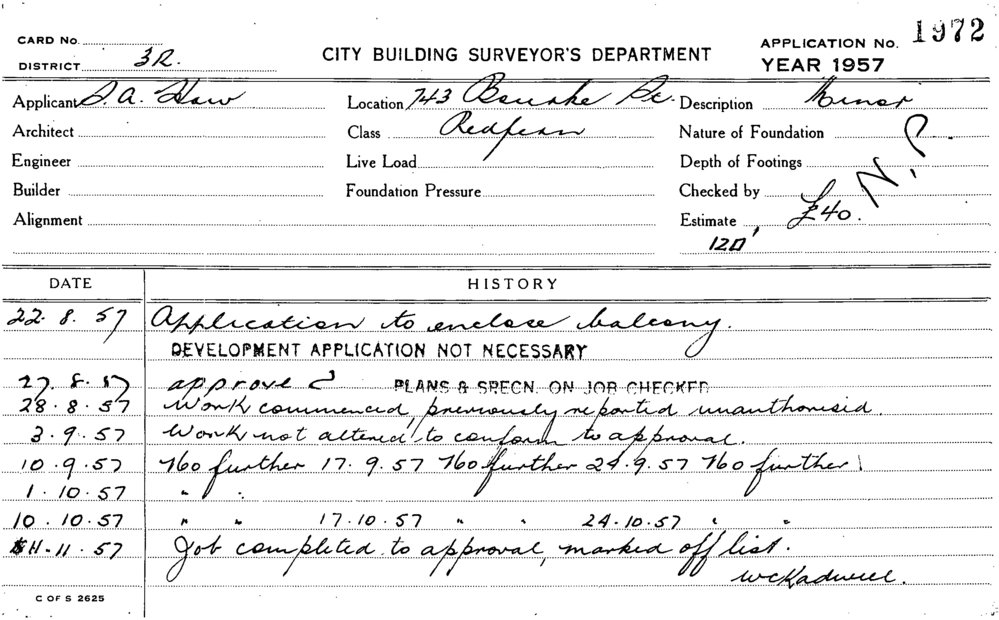 CARD No.
DISTRICT 3R.
CITY BUILDING SURVEYOR'S DEPARTMENT
APPLICATION No. 1972
YEAR 1957
Applicant S. A. Haw
Location 743 Bourke St. Description Minor
Architect
Class Redfern
Nature of Foundation
Engineer
Live Load
Depth of Footings
N.P.
Builder
Foundation Pressure
Checked by
Alignment
Estimate £40.
120'
DATE HISTORY
22. 8. 57 Application to enclose balcony.
DEVELOPMENT APPLICATION NOT NECESSARY
27. 8. 57 approved PLANS & SPECN. ON JOB CHECKED
28. 8. 57 Work commenced, previously reported unauthorised.
3. 9. 57 Work not altered to conform to approval.
10. 9. 57 No further 17. 9. 57 No further 24. 9. 57 No further
1. 10. 57 " "
10. 10. 57 " " 17.10.57 " " 24.10.57 " "
11. 11. 57 Job completed to approval, marked off list.
C OF S 2625